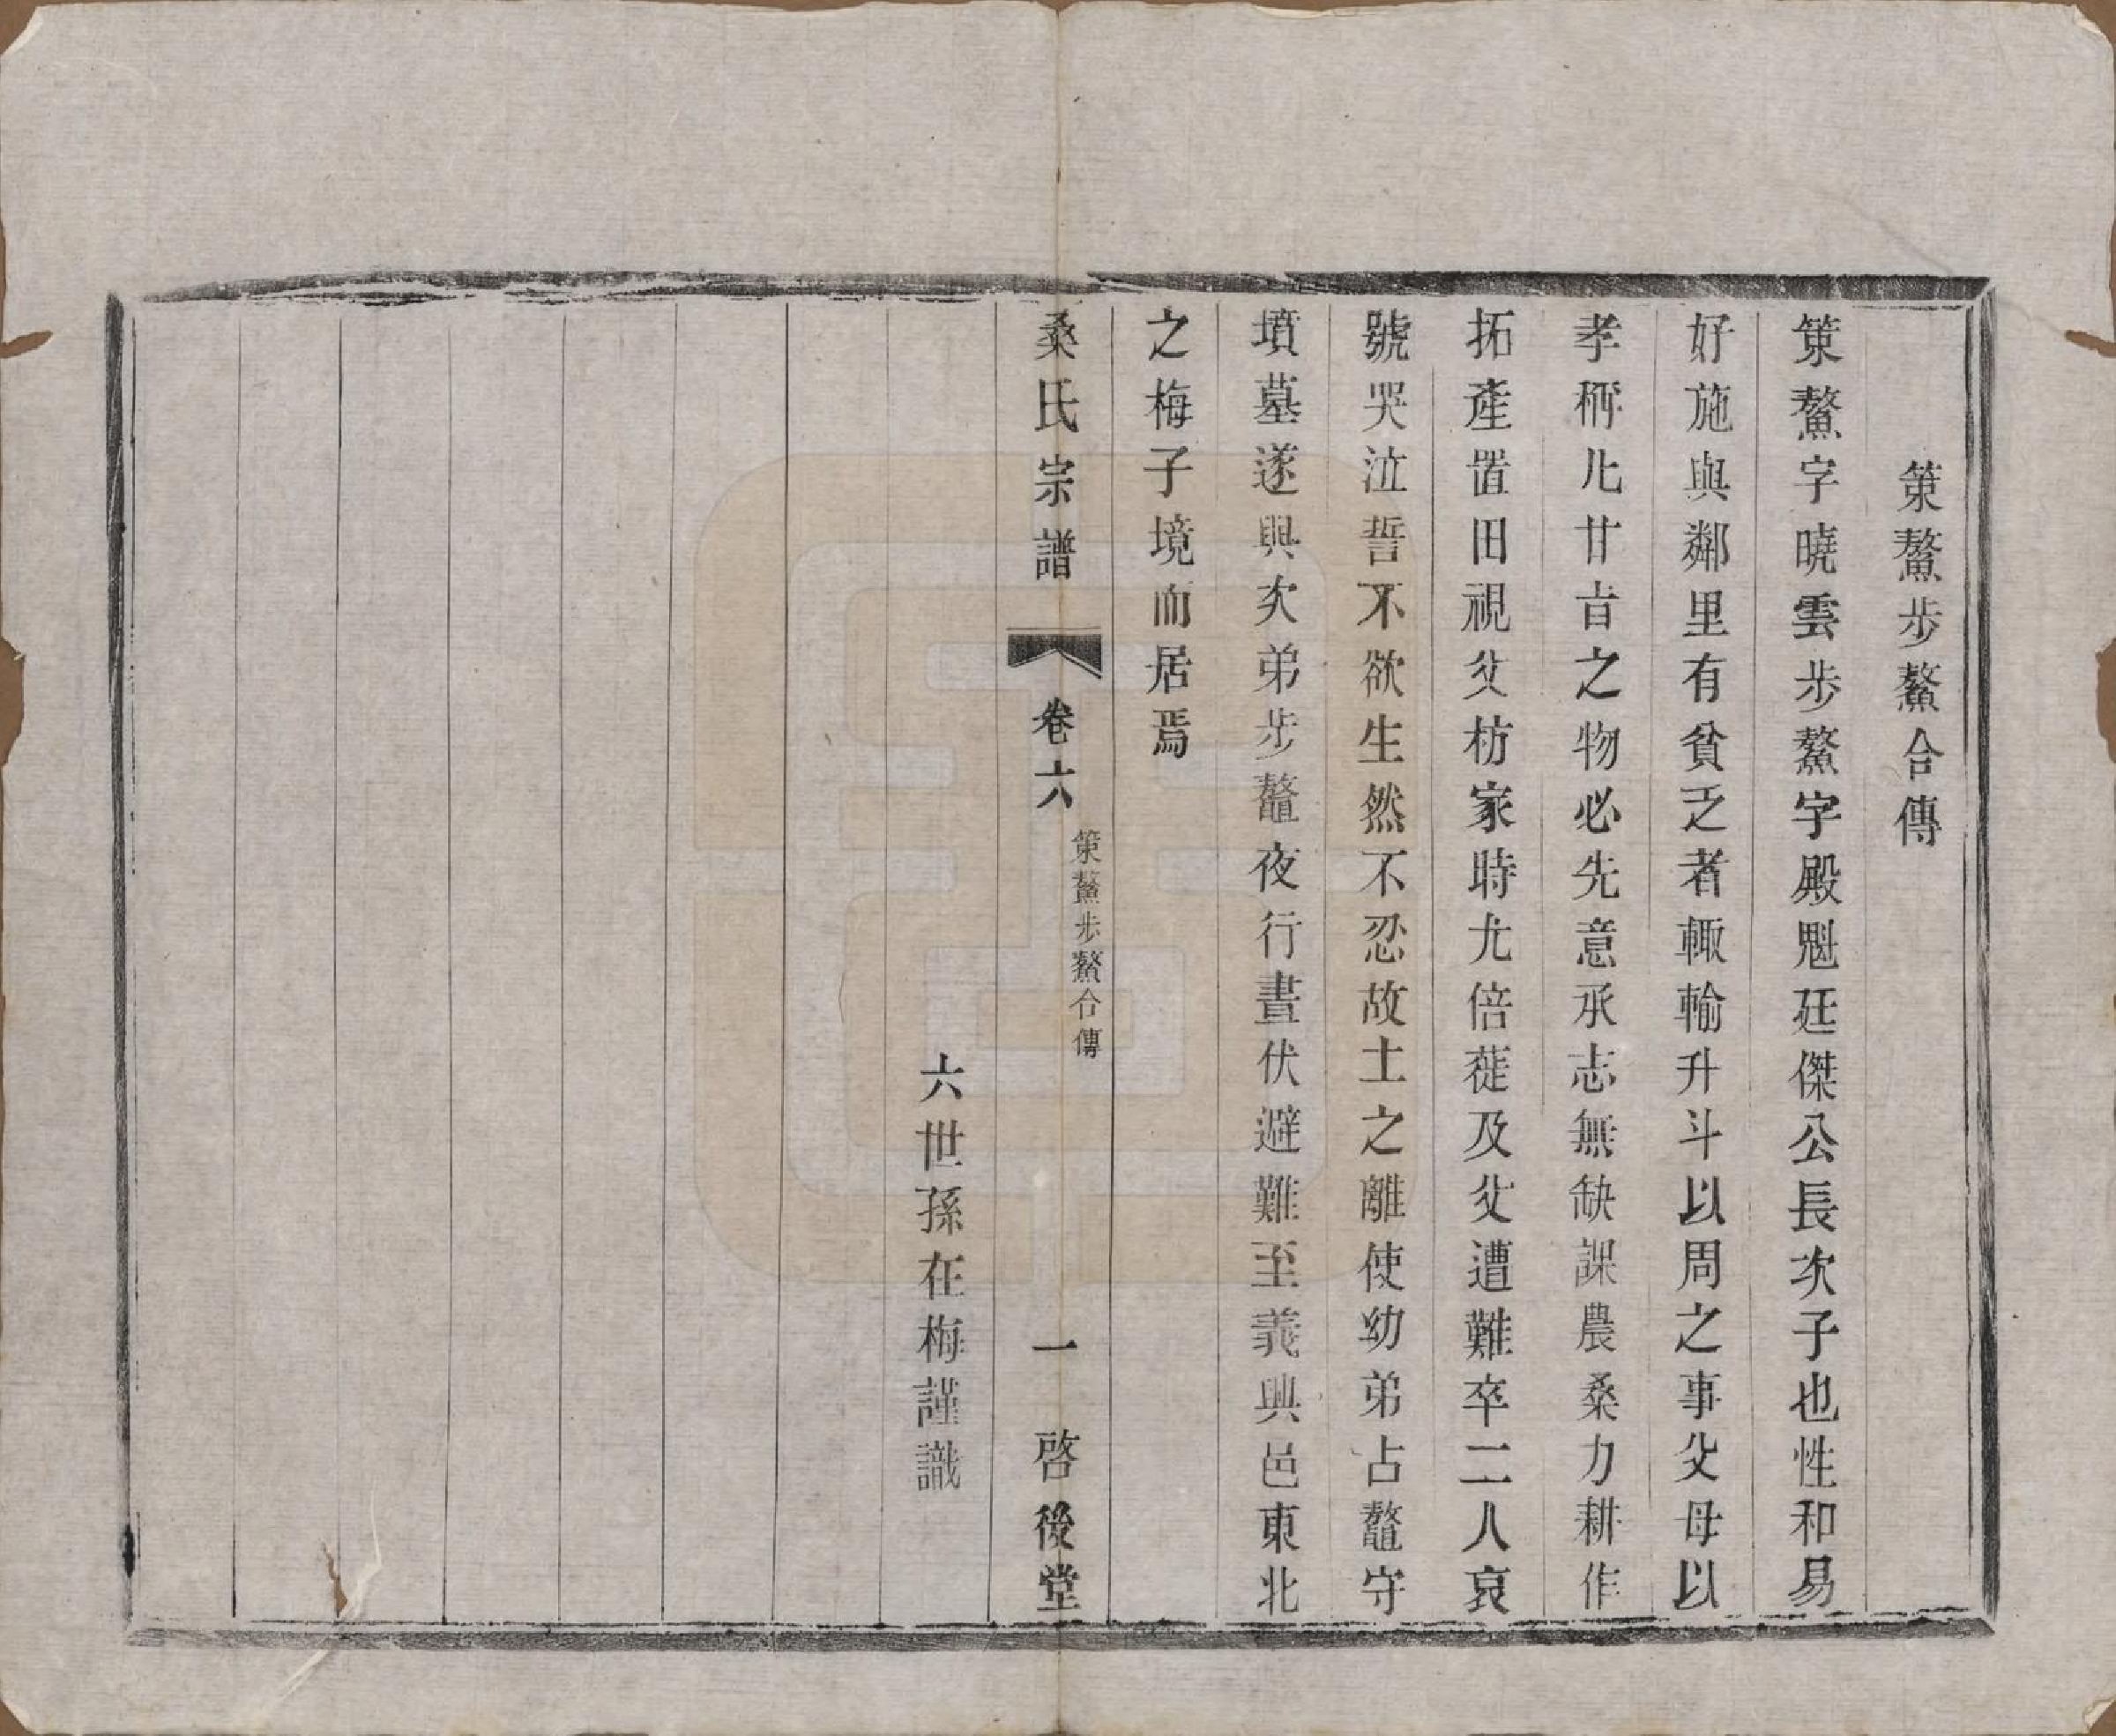 策鰲步鰲合傳
策鰲字曉雲步鰲字殿魁廷傑公長次子也性和易
好施與鄰里有貧乏者輒輸升斗以周之事父母以
孝稱凡甘旨之物必先意承志無缺課農桑力耕作
拓產置田視父枋家時尤倍蓰及父遭難卒二人哀
號哭泣誓不欲生然不忍故土之離使幼弟占鼇守
墳墓遂與次弟步鼇夜行晝伏避難至義興邑東北
之梅子境而居焉
桑氏宗譜
卷六
策鰲步鰲合傳
一
啓後堂
六世孫在梅謹識